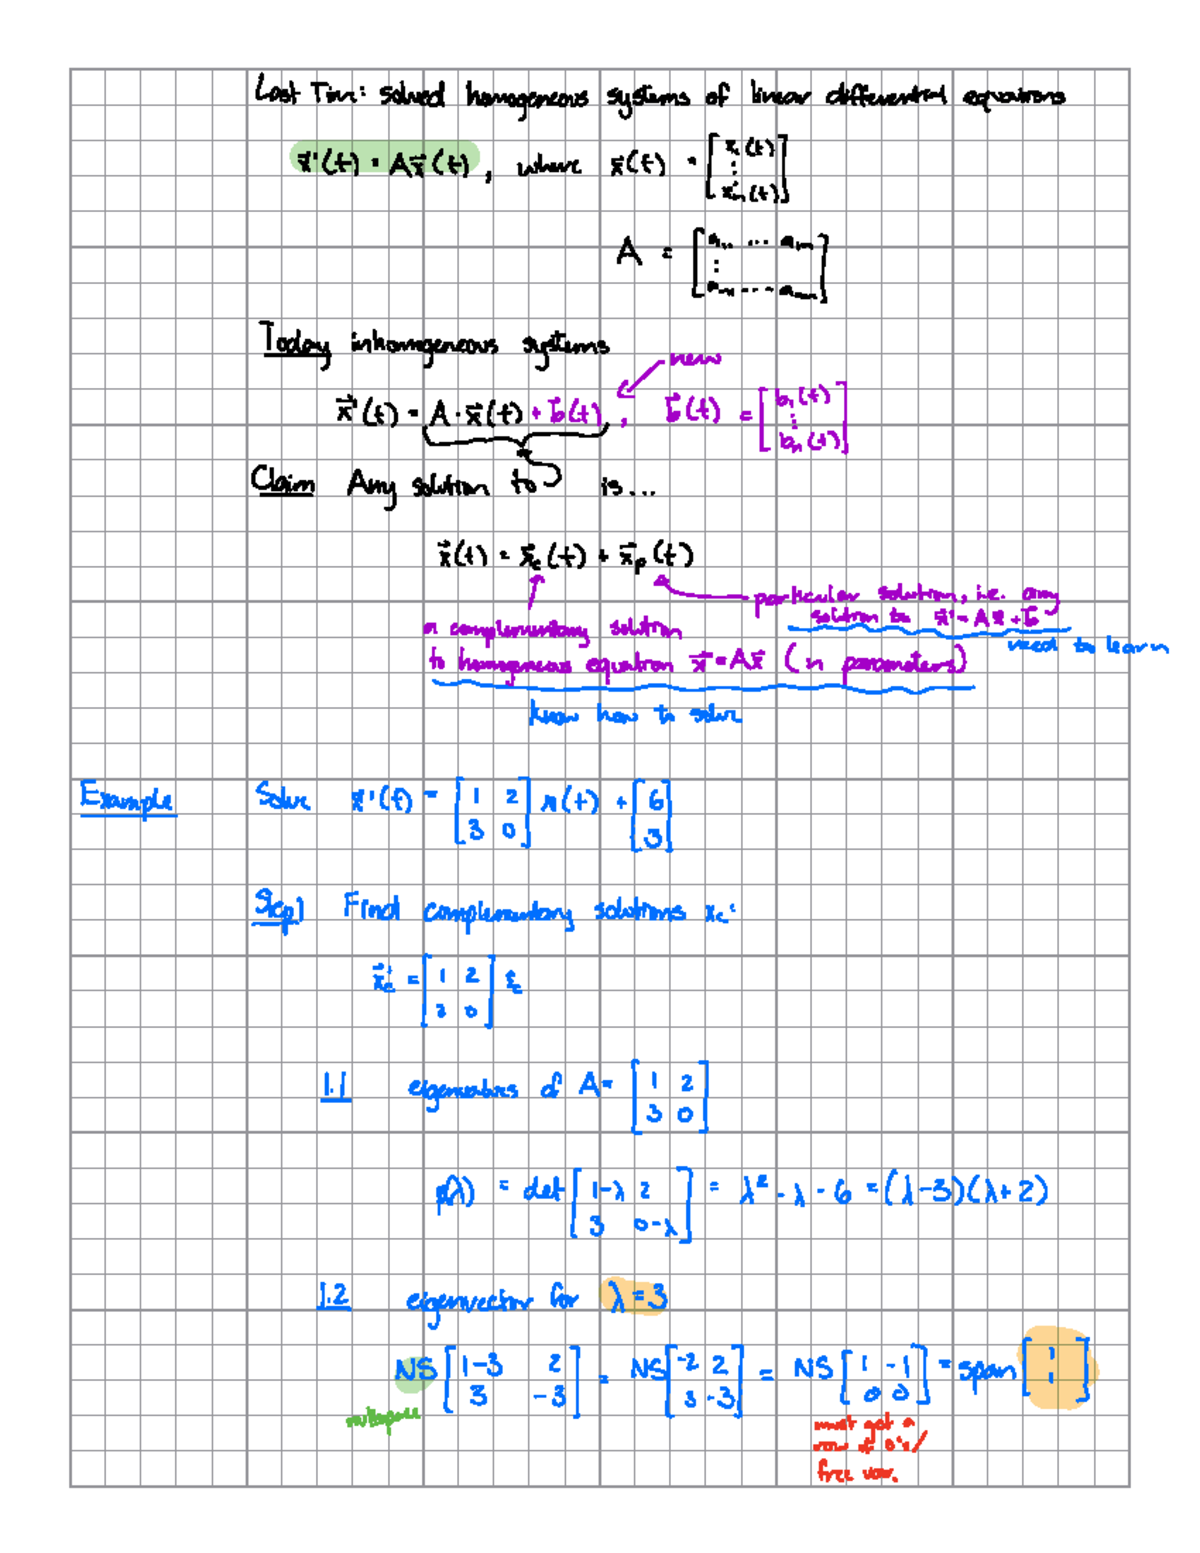 Last Time: solved homogeneous systems of linear differential equations
x⃗'(t) = Ax⃗(t), where x⃗(t) = [x₁(t) ⋮ xₙ(t)]
A = [a₁₁ ... a₁ₙ ⋮ aₙ₁ ... aₙₙ]
Today inhomogeneous systems
new
x⃗'(t) = A·x⃗(t) + b⃗(t), b⃗(t) = [b₁(t) ⋮ bₙ(t)]
Claim Any solution to is...
x⃗(t) = x⃗c(t) + x⃗p(t)
particular solution, i.e. any
solution to x⃗' = Ax⃗ + b⃗
need to learn
a complementary solution
to homogeneous equation x⃗' = Ax⃗ (n parameters)
know how to solve
Example Solve x⃗'(t) = [1 2; 3 0] x(t) + [6; 3]
Step 1 Find complementary solutions xc:
x⃗c' = [1 2; 3 0] x⃗c
1.1 eigenvalues of A = [1 2; 3 0]
p(λ) = det [1-λ 2; 3 0-λ] = λ² - λ - 6 = (λ-3)(λ+2)
1.2 eigenvector for λ = 3
NS [1-3 2; 3 -3] = NS [-2 2; 3 -3] = NS [1 -1; 0 0] = span [1; 1]
nullspace
must get a
row of 0's/
free var.